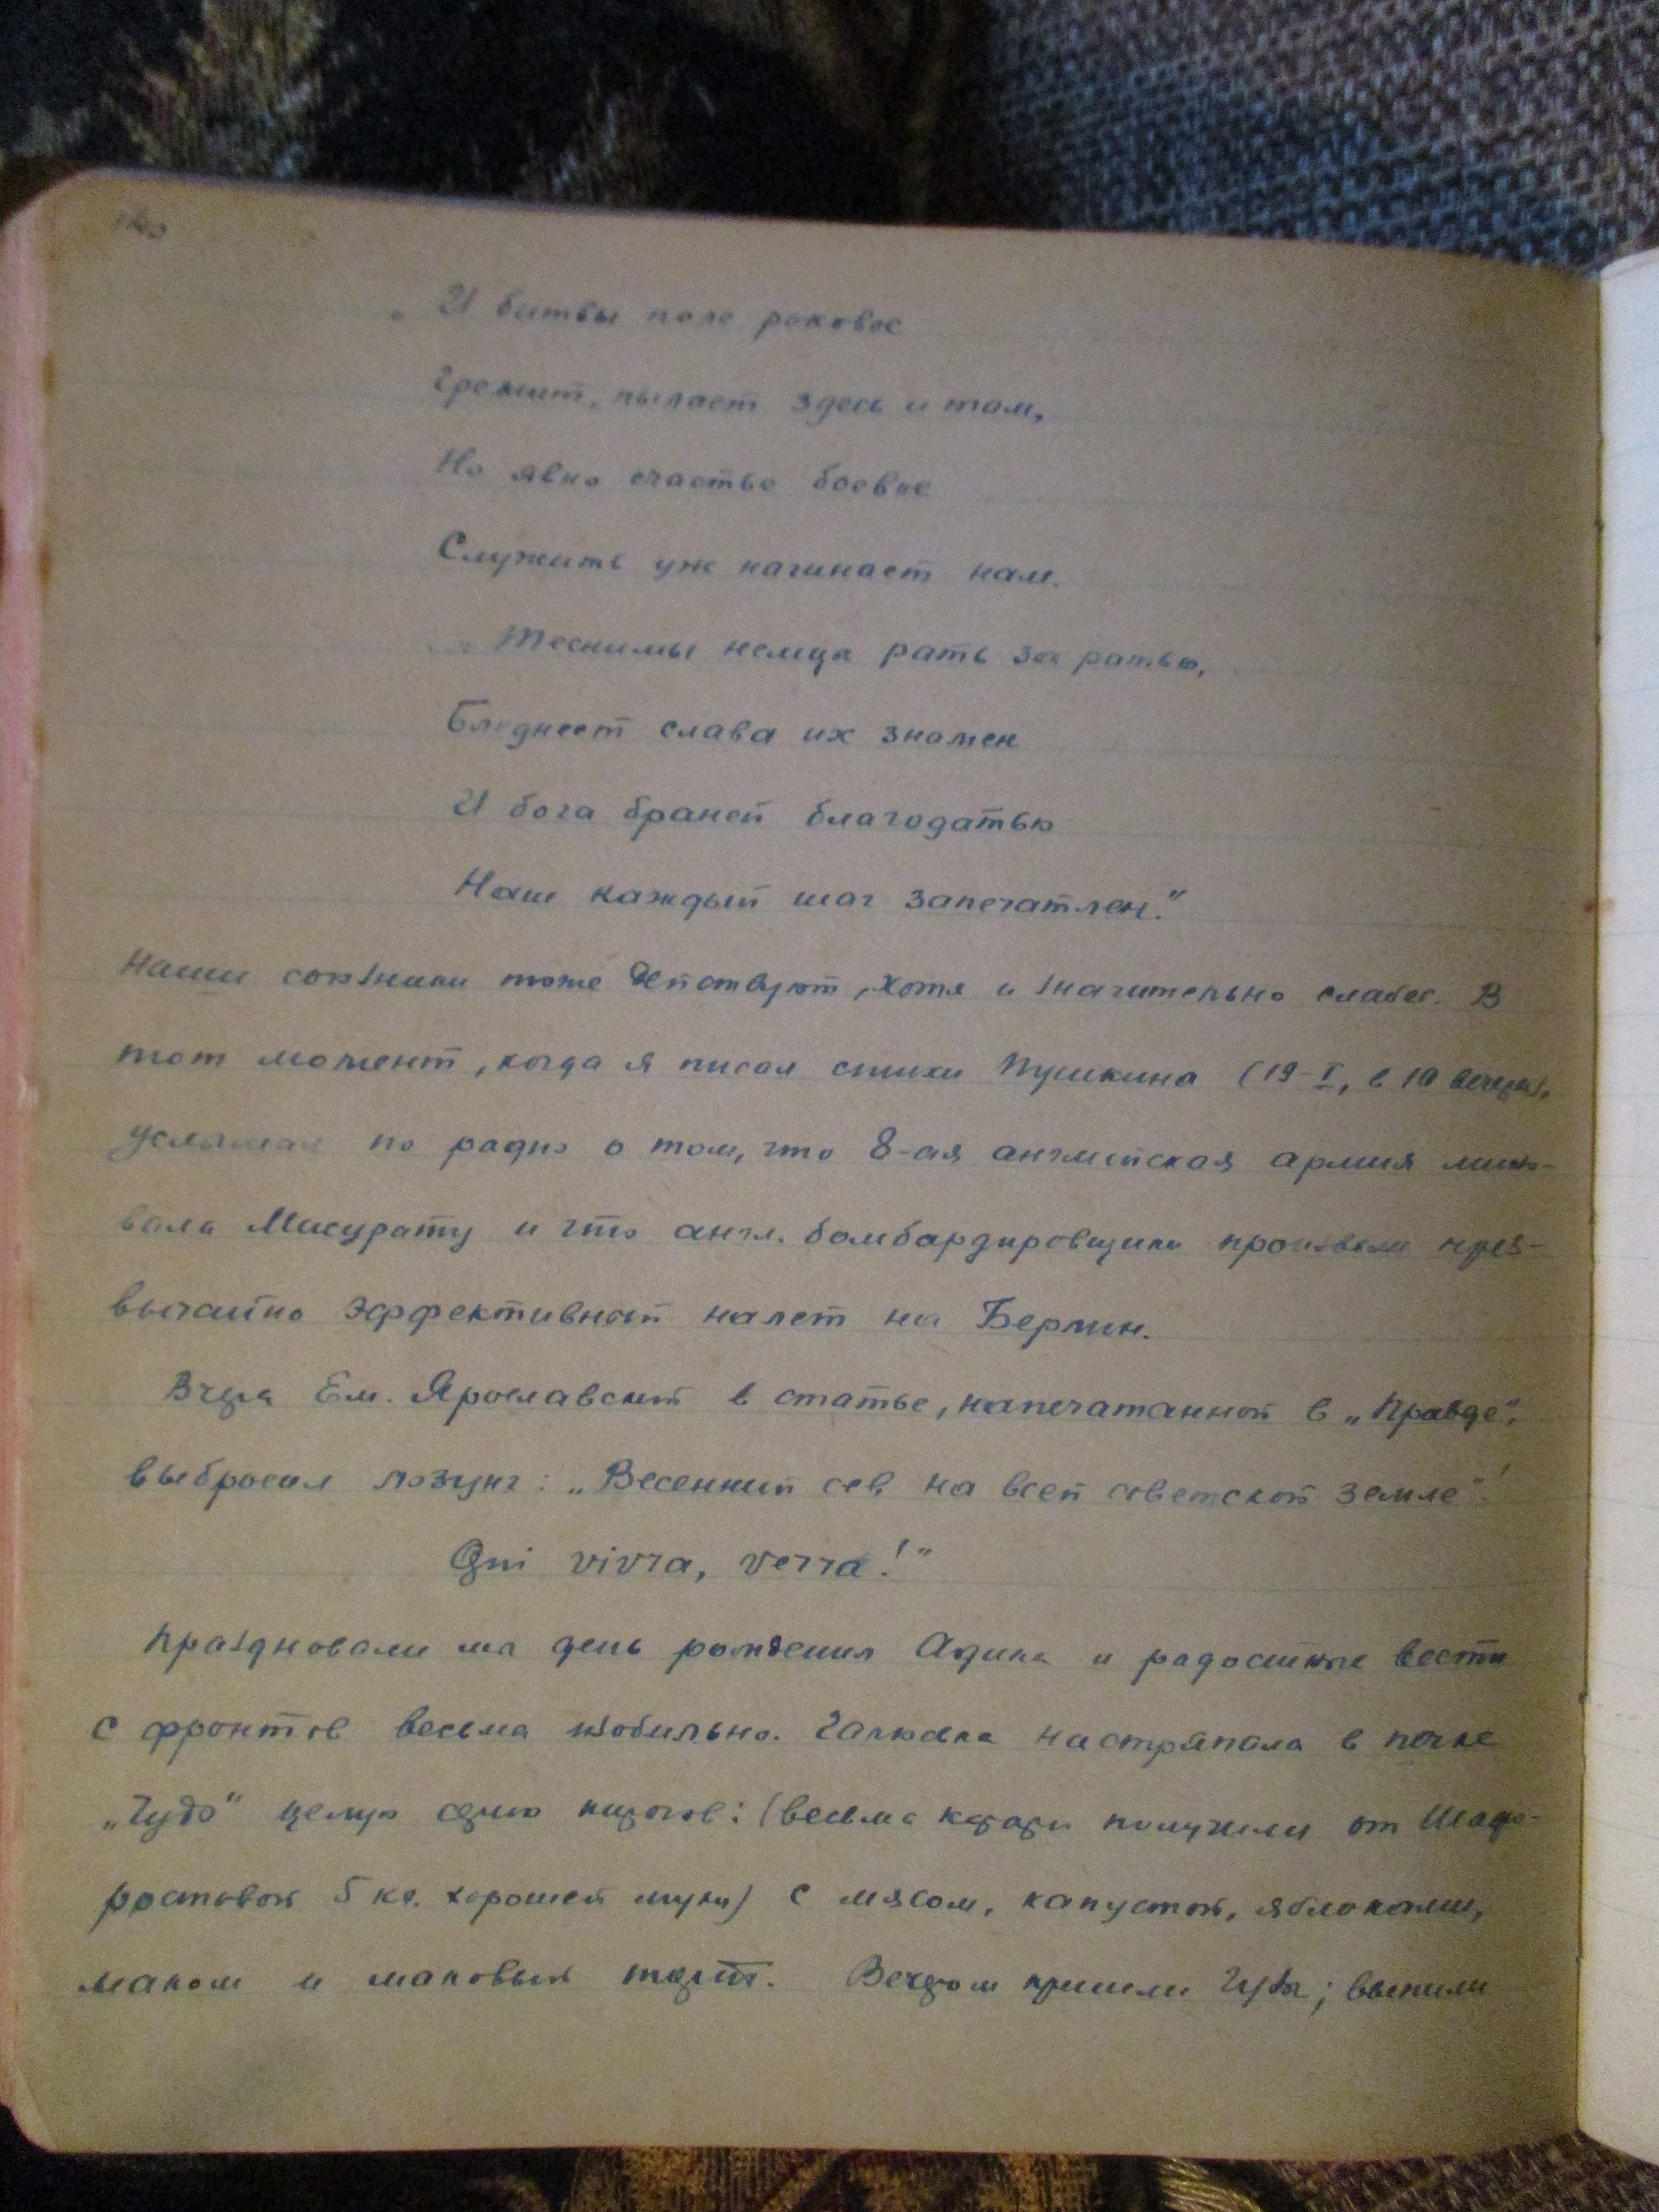 140
„И битвы поле роковое
Гремит, пылает здесь и там,
Но явно счастье боевое
Служить уж начинает нам.
Теснимы немцы рать за ратью,
Бледнеет слава их знамен
И бога браней благодатью
Наш каждый шаг запечатлен."
Наши союзники тоже действуют, хотя и значительно слабее. В
тот момент, когда я писал стихи Пушкина (19-I, в 10 вечера),
услышал по радио о том, что 8-ая английская армия мино-
вала Мисурату и что англ. бомбардировщики произвели чрез-
вычайно эффективный налет на Берлин.
Вчера Ем. Ярославский в статье, напечатанной в „Правде",
выбросил лозунг: „Весенний сев на всей советской земле"!
Qui vivra, verra!"
Праздновали мы день рождения Адика и радостные вести
с фронтов весьма изобильно. Галюська настряпала в печке
„Чудо" целую серию пирогов: (весьма кстати получили от
5 кг. хорошей муки) с мясом, капустой, яблоками,
маком и маковый торт. Вечером пришли ; выпили